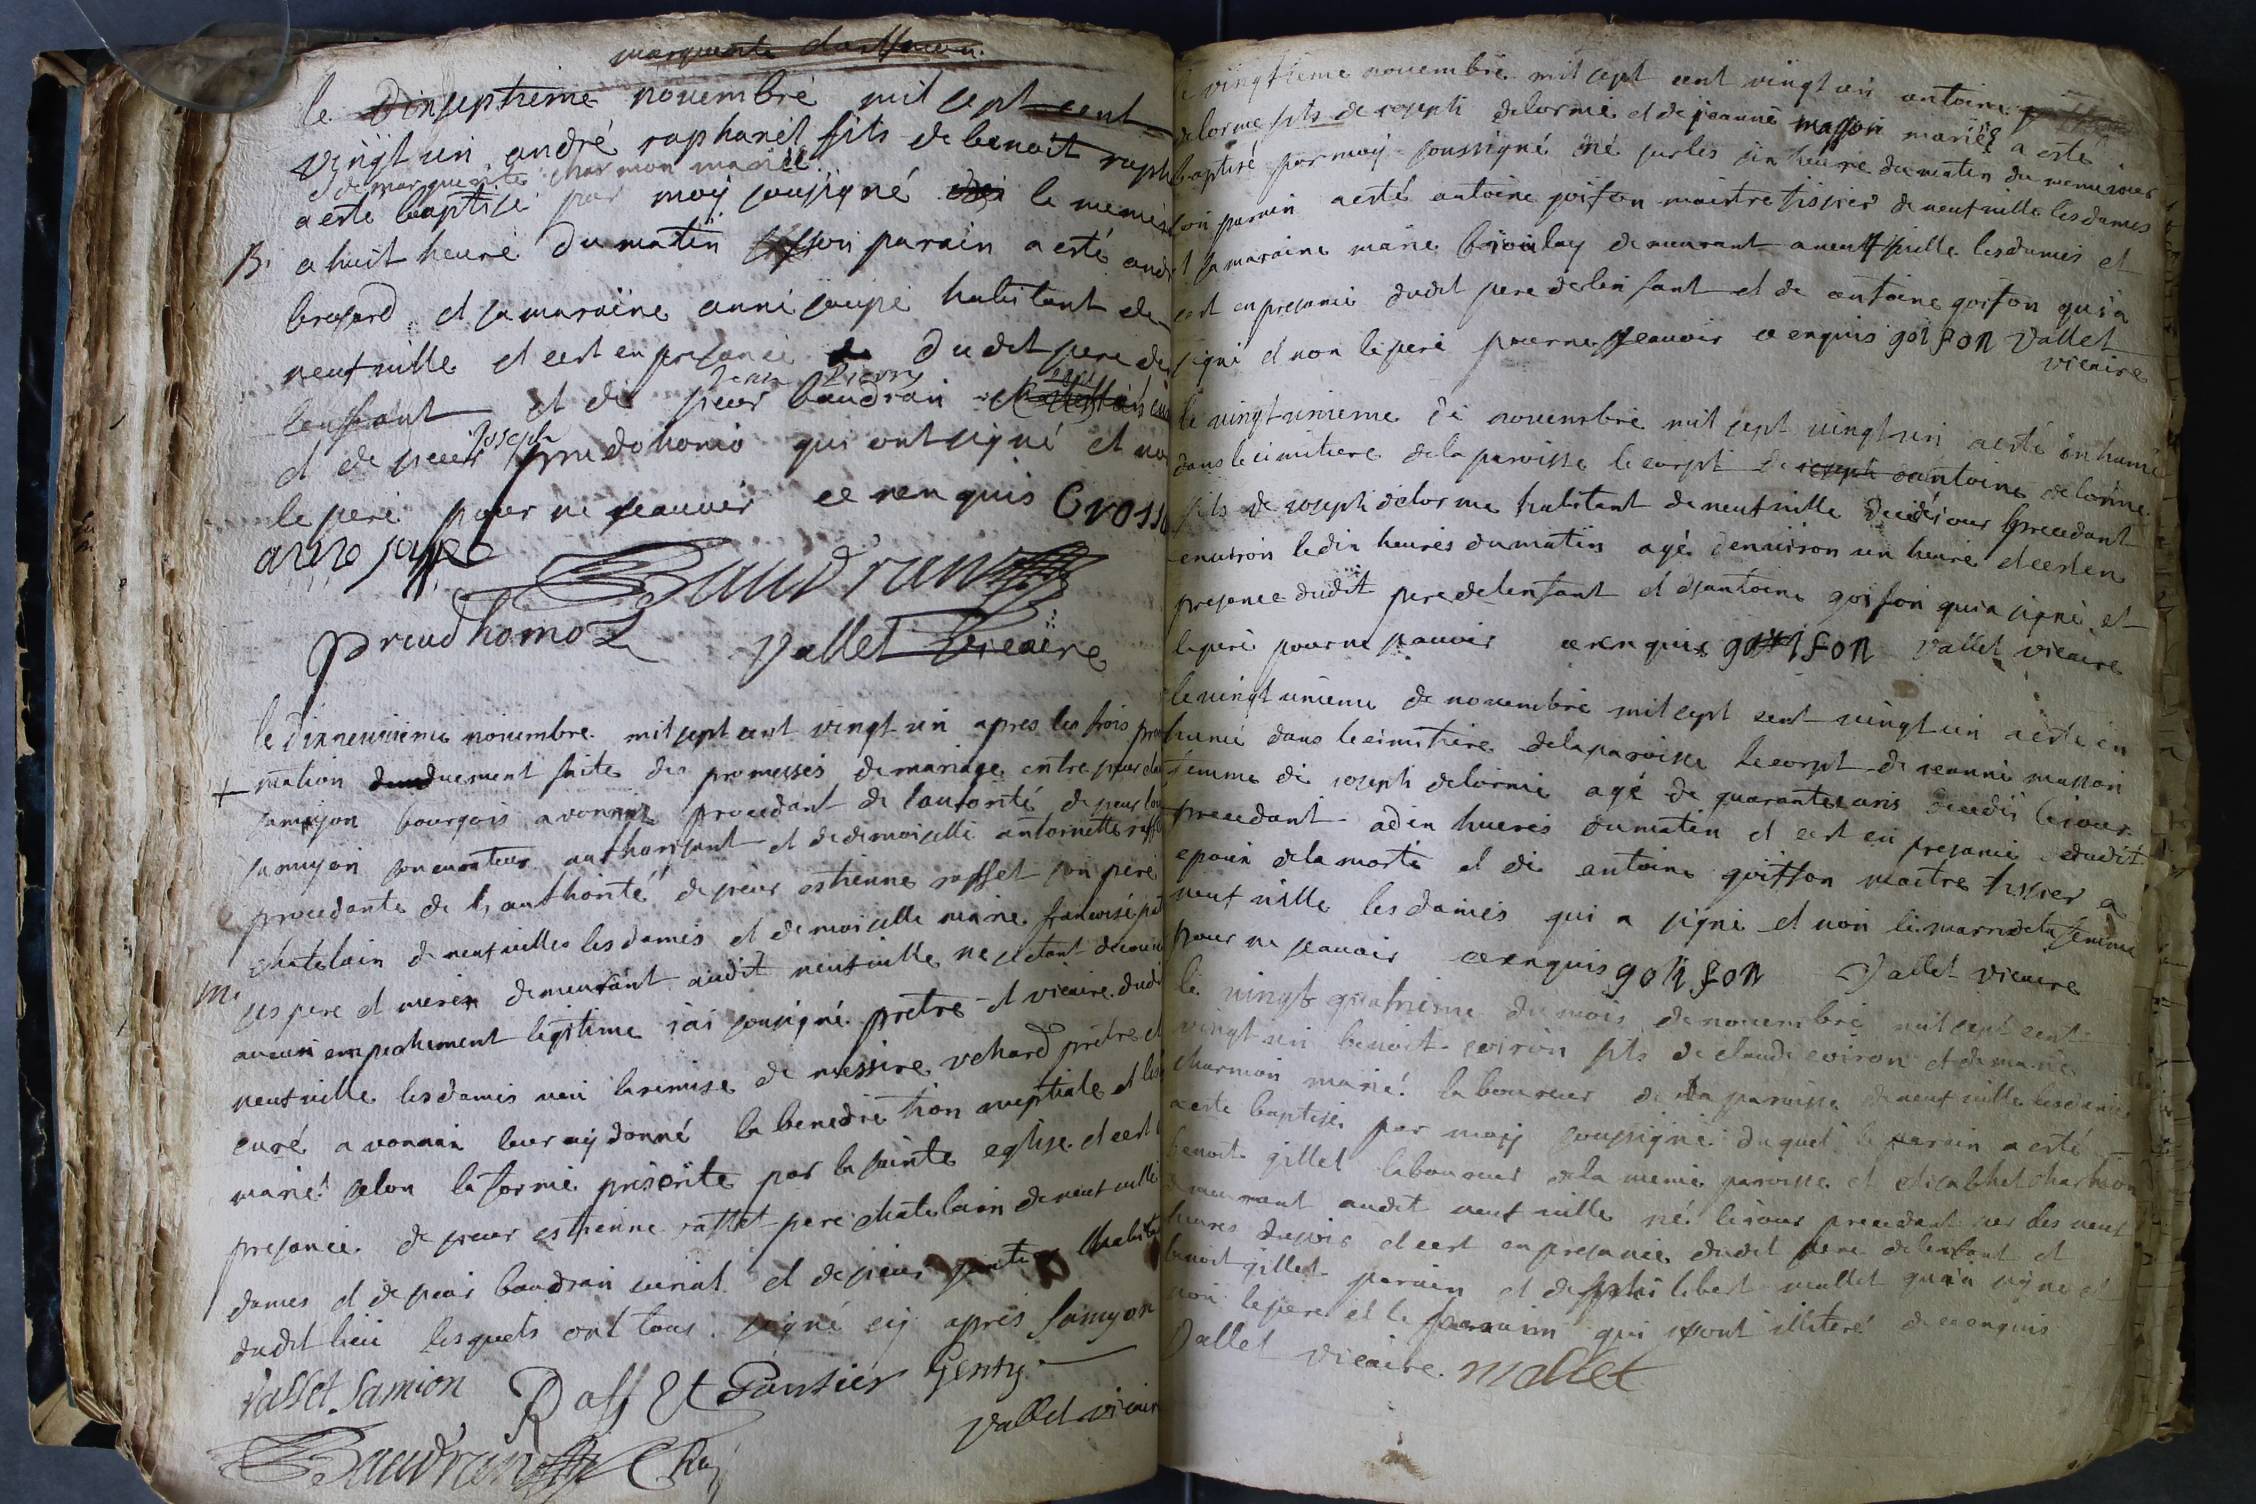 marguerite charmon
le dixseptieme novembre mil sept cent
vingt un andré raphanel fils de benoit raph
de marguerite charmon marié
a esté baptisé par moy sousigné le meme
B. a huit heure du matin son parain a esté andr
berosard et sa maraine anne jaupe habitant de
neufville et cest en presance dudit pere de
lenfant et de sieur jean pierre baudran
et de sieur joseph prudohomo qui ont signé et no
le pere pour ne scauoir ce renquis Cross
anne jappe
Baudran
preudhomo Vallet Vicaire
le dixneuvieme novembre mil sept cent vingt un apres les trois pro
+ mation duement faite des promesses de mariage entre sieur
samyon bourgois a vonnax procedant de lautorité de sieur
samyon son curateur authorisant et de demoiselle antoinette raff
procedante de l'authorité de sieur estienne raffet son pere
chatelain de neufville les dames et demoiselle marie francoise
M. ses pere et mere demeurant audit neufville ne setant decou
aucun empechement legitime iai sousigné pretre et vicaire dudi
neufville les dames veu la remise de messire vchard pretre et
curé a vonnax leur aij donné la benediction nuptiale et les
marié selon la forme prescrite par la sainte eglise et cest
presance de sieur estienne raffet pere chatelain de neufville
dames et de sieur baudran et de sieur habita
dudit lieu lesquels ont tous signé cij apres Samyon
raffet Samion Raffet Gentij
Baudran Vallet vicair
le vingtieme novembre mil sept cent vingt un antoine
delorme fils de joseph delorme et de jeanne masson mariés a esté
baptisé par moy soussigné né sur les dix heure du matin du meme iour
son parain a esté antoine goifon maistre tissier de neufville les dames
et sa maraine marie demeurant a neufville les dames et
cest en presance dudit pere de lenfant et de antoine goifon qui a
signé et non le pere pour ne sceauoir ce enquis goifon Vallet
vicaire
le vingt unieme de novembre mil sept vingt un a esté inhumé
dans le cimitiere de la paroisse le corpt de joseph antoine delorme
fils de joseph delorme habitant de neufville decedé iour precedant
environ le dix heures du matin agé denuiron un heure et cest en
presance dudit pere de lenfant et dantoine goifon qui a signé et
le pere pour ne scauoir ce renquis goifon vallet vicaire
le vingt unieme de novembre mil sept cent vingt un a esté en
humé dans le cimitiere de la paroisse le corpt de jeanne masson
femme de joseph delorme agé de quarante ans decedé le iour
precedant a dix hueres du matin et cest en presance dudit
epoux de la morte et de antoine goiffon maitre tissier a
neufville les dames qui a signé et non le mary de la femme
pour ne scauoir ce enquis goifon Vallet vicaire
le vingt quatrieme du mois de novembre mil sept cent
vingt un benoit coiron fils de claude coiron et de marie
charmon marié laboureur de la paroisse de neufville les dames
a esté baptisé par moy soussigné duquel le parain a esté
benoit gillet laboureur de la meme paroisse et elisabhet charmon
demeurant audit neufville né le iour precedant sur les neuf
heures du soir et cest en presance dudit pere de lenfant et
benoit gillet parain et de philibert mallet qui a signé et
non le pere et le parain qui sont illiteré de ce enquis
Vallet vicaire mallet